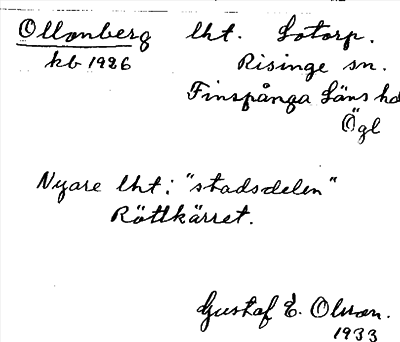 Ollonberg lht. Lotorp.
kb 1926 Risinge sn.
Finspånga Läns hd
Ögl
Nyare lht: "stadsdelen"
Röttkärret.
Gustaf E. Olsson.
1933